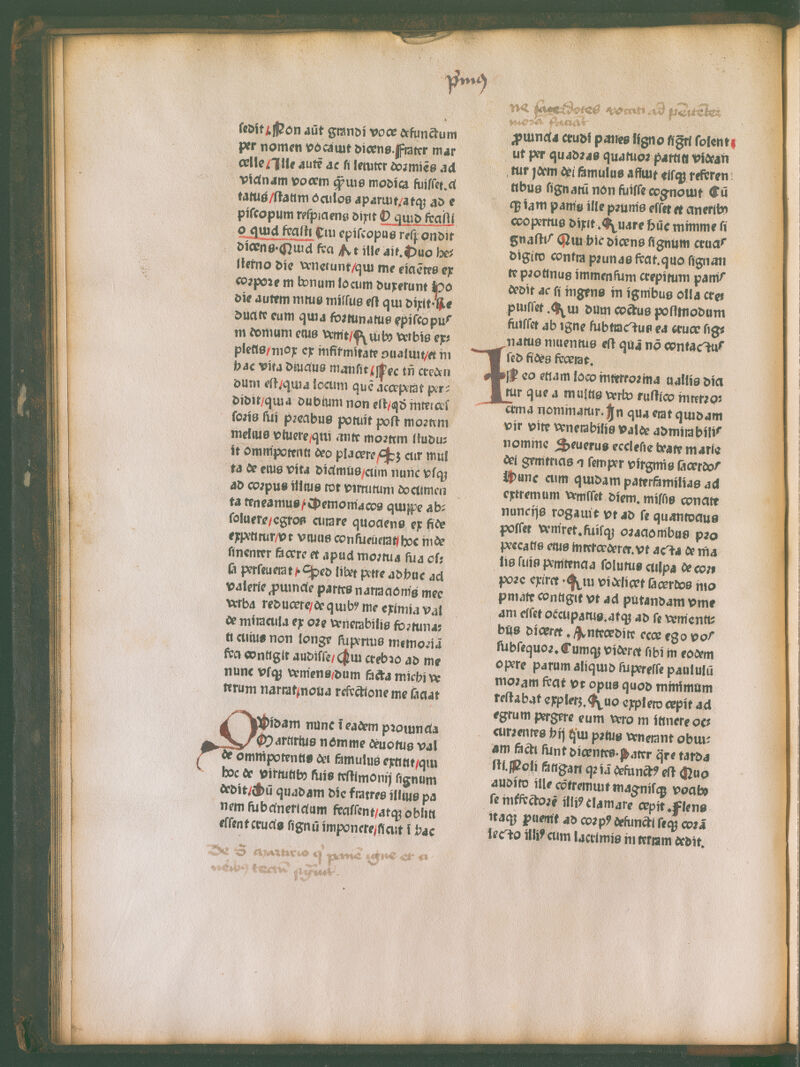 p̄mꝰ
sedit. Non aūt grandi voce defunctum
per nomen vocauit dicens. Frater mar
celle. Ille autē ac si leuiter dormiēs ad
vicinam vocem q̄uis modica fuisset. ci
tatus/statim oculos aparuit/atqꝫ ad e
piscopum respiciens dixit O quid fecisti
o quid fecisti Cui episcopus respondit
dicens. Quid feci At ille ait. Duo he⸗
sterno die venerunt/qui me eiciētes ex
corpore in bonum locum duxerunt ho
die autem nuntius missus est qui dixit. Re
ducite eum quia fortunatus episcopus
in domum eius venit/Quibꝰ verbis ex⸗
pletis/mox ex infirmitate conualuit/et in
hac vita diucius mansit. Nec tn̄ creden
dum est/quia locum quē acceperat per⸗
didit/quia dubium non est/qd̓ interces
soris sui precabus potuit post mortem
melius viuere/qui ante mortem studu⸗
it omnipotenti deo placere/Sꝫ cur mul
ta de eius vita dicimus/cum nunc vsqꝫ
ad corpus illius tot virtutum documen
ta teneamus. Demoniacos quippe ab⸗
soluere/egros curare quociens ex fide
expetitur/vt viuus consueuerat/hoc inde
sinenter facere et apud mortua sua os⸗
sa perseuerat. Sed libet petre adhuc ad
valerie ꝓuincie partes narracionis mee
verba reducere/de quibꝰ me eximia val
de miracula ex ore venerabilis fortuna⸗
ti cuius non longe superius memoriā
feci contigit audisse/Qui crebro ad me
nunc vsqꝫ veniens/dum facta michi ve
terum narrat/noua refectione me saciat
QVidam nunc ī eadem prouincia
Martirius nomine deuotus val
de omnipotentis dei famulus extitit/qui
hoc de virtutibꝰ suis testimonij signum
dedit/Dū quadam die fratres illius pa
nem subcinericium fecissent/atqꝫ obliti
essent crucis signū imponere/sicut ī hac
De S̄ martirio q̄ panē igne et ci
ne sacerdotes vocati ad pēitētes
morā faciāt
ꝓuincia crudi panes ligno sig̃ri solent
ut per quadras quatuor partiti videan
tur idem dei famulus affuit eisqꝫ referen⸗
tibus signatū non fuisse cognouit Cū
qꝫ iam panis ille prunis esset et cineribꝰ
coopertus dixit. Quare hūc minime si
gnastis Qui hic dicens signum crucis
digito contra prunas fecit. quo signan
te protinus immensum crepitum panis
dedit ac si ingens in ignibus olla cre⸗
puisset. Qui dum coctus postmodum
fuisset ab igne subtractus ea cruce sig⸗
natus inuentus est quā nō contactus
sed fides fecerat.
IN eo etiam loco interrorina uallis dici
tur que a multis verbo rustico interro⸗
crina nominatur. In qua erat quidam
vir vite venerabilis valde admirabilis
nomine Seuerus ecclesie beate marie
dei genitricis ⁊ semper virginis sacerdos
Hunc cum quidam paterfamilias ad
extremum venisset diem. missis concite
nuncijs rogauit vt ad se quantocius
posset veniret. suisqꝫ oracionibus pro
peccatis eius intercederet. vt acta de ma
lis suis penitencia solutus culpa de cor⸗
pore exiret. Qui videlicet sacerdos ino
pinate contigit vt ad putandam vine
am esset occupatus. atqꝫ ad se venienti⸗
bus diceret. Antecedite ecce ego vos
subsequor. Cumqꝫ videret sibi in eodem
opere parum aliquid superesse paululū
moram fecit vt opus quod minimum
restabat expleret. Quo expleto cepit ad
egrum pergere eum vero in itinere oc⸗
currentes hij qui prius venerant obui⸗
am facti sunt dicentes. Pater q̄re tarda
sti. Noli fatigari qꝛ iā defunctꝰ est Quo
audito ille cōtremuit magnisqꝫ vocibꝰ
se infectorē illiꝰ clamare cepit. Flens
itaqꝫ ꝑuenit ad corpꝰ defuncti seqꝫ corā
lecto illiꝰ cum lacrimis in terram dedit.